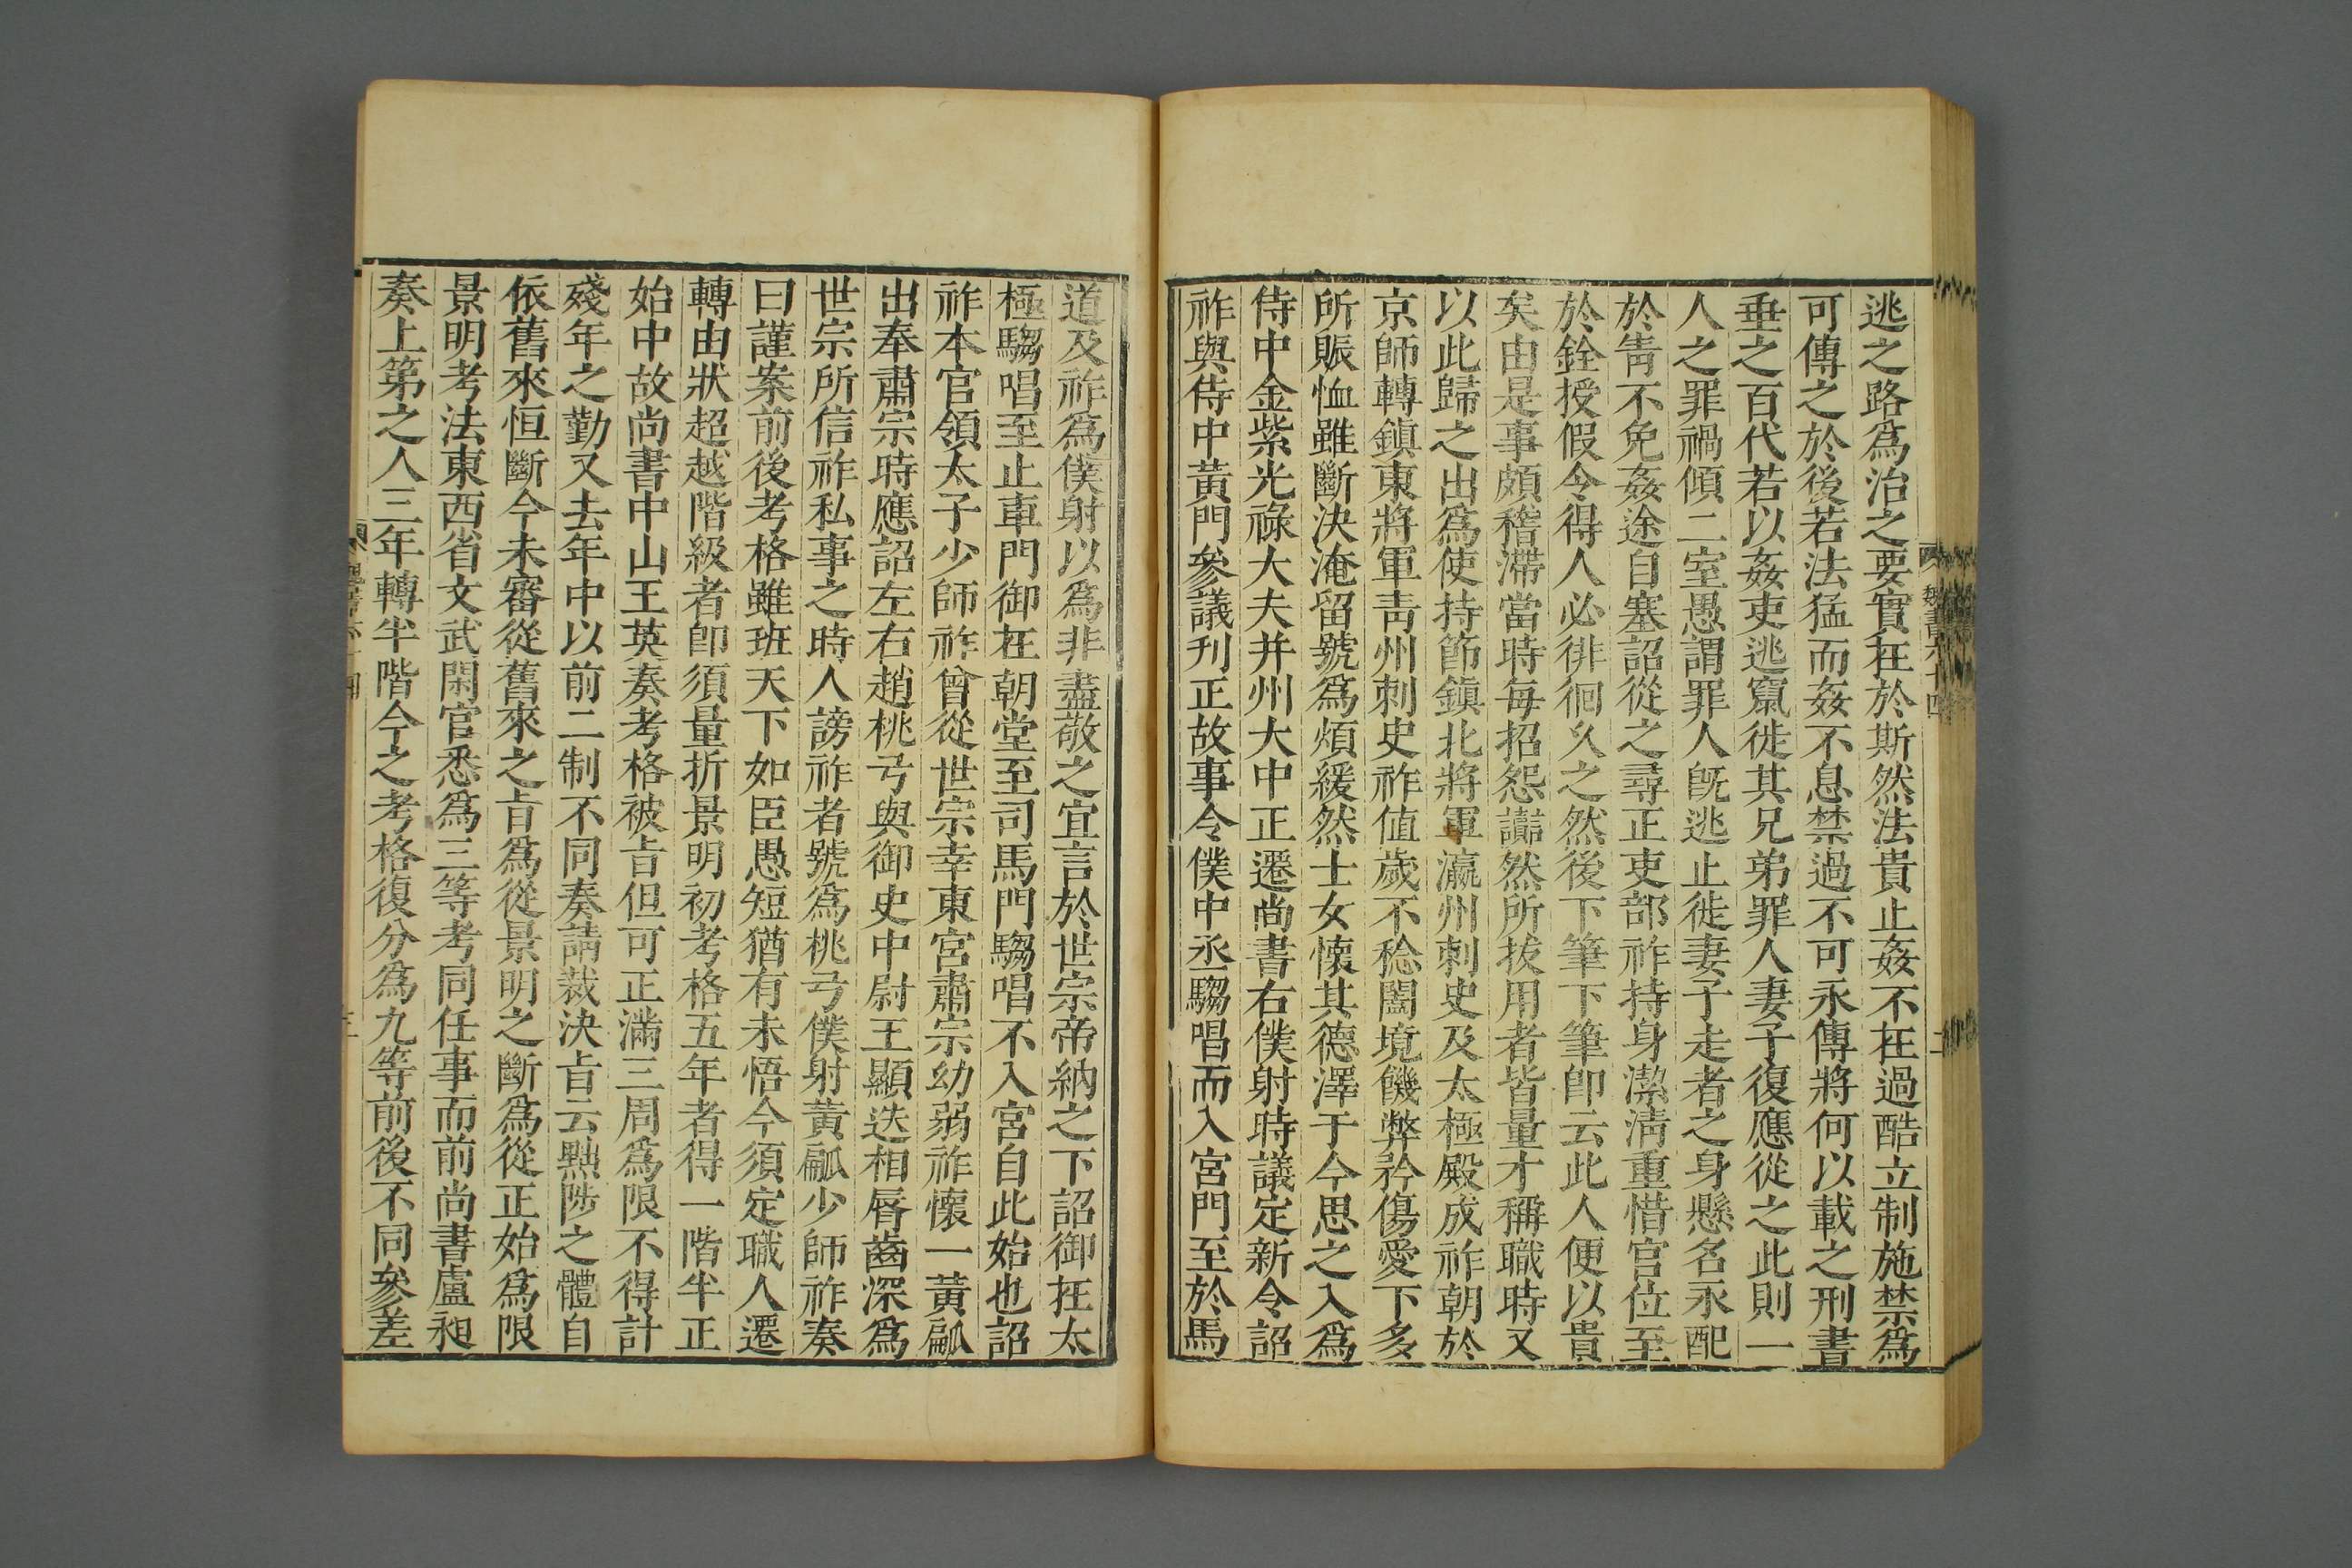 逃之路爲治之要實在於斯然法貴止姦不在過酷立制施禁爲
可傳之於後若法猛而姦不息禁過不可永傳將何以載之刑書
垂之百代若以姦吏逃竄徙其兄弟罪人妻子復應從之此則一
人之罪禍傾二室愚謂罪人旣逃止徙妻子走者之身懸名永配
於眚不免姦途自塞詔從之尋正吏部祚持身潔清重惜官位至
於銓授假令得人必徘徊久之然後下筆下筆卽云此人便以貴
矣由是事頗稽滯當時每招怨讟然所拔用者皆量才稱職時又
以此歸之出爲使持節鎮北將軍瀛州刺史及太極殿成祚朝於
京師轉鎮東將軍靑州刺史祚值歲不稔闔境饑弊矜傷愛下多
所賑恤雖斷決淹留號爲煩緩然士女懷其德澤于今思之入爲
侍中金紫光祿大夫并州大中正遷尚書右僕射時議定新令詔
祚與侍中黃門參議刊正故事令僕中丞騶唱而入宮門至於馬
道及祚爲僕射以爲非盡敬之宜言於世宗帝納之下詔御在太
極騶唱至止車門御在朝堂至司馬門騶唱不入宮自此始也詔
祚本官領太子少師祚曾從世宗幸東宮肅宗幼弱祚懷一黃㼐
出奉肅宗時應詔左右趙桃弓與御史中尉王顯迭相脣齒深爲
世宗所信祚私事之時人謗祚者號爲桃弓僕射黃㼐少師祚奏
曰謹案前後考格雖班天下如臣愚短猶有未悟今須定職人遷
轉由狀超越階級者卽須量折景明初考格五年者得一階半正
始中故尚書中山王英奏考格被旨但可正滿三周爲限不得計
殘年之勤又去年中以前二制不同奏請裁決旨云黜陟之體自
依舊來恒斷今未審從舊來之旨爲從景明之斷爲從正始爲限
景明考法東西省文武閑官悉爲三等考同任事而前尚書盧昶
奏上第之人三年轉半階今之考格復分爲九等前後不同參差
魏書六十四
二